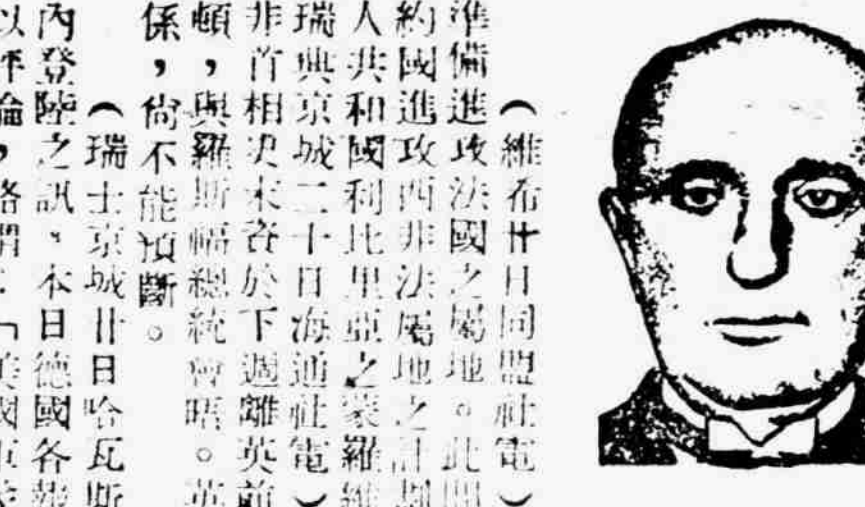 （維希廿日同盟社電）
準備進攻法國之屬地。此間
約國進攻西非法屬地之計劃
人共和國利比里亞之蒙羅維
瑞典京城二十日海通社電）
非首相史末資於下週離英前
頓，與羅斯福總統會晤。英
係，尙不能預斷。
（瑞士京城廿日哈瓦斯
內登陸之訊，本日德國各報
以評論，略謂：「美國軍